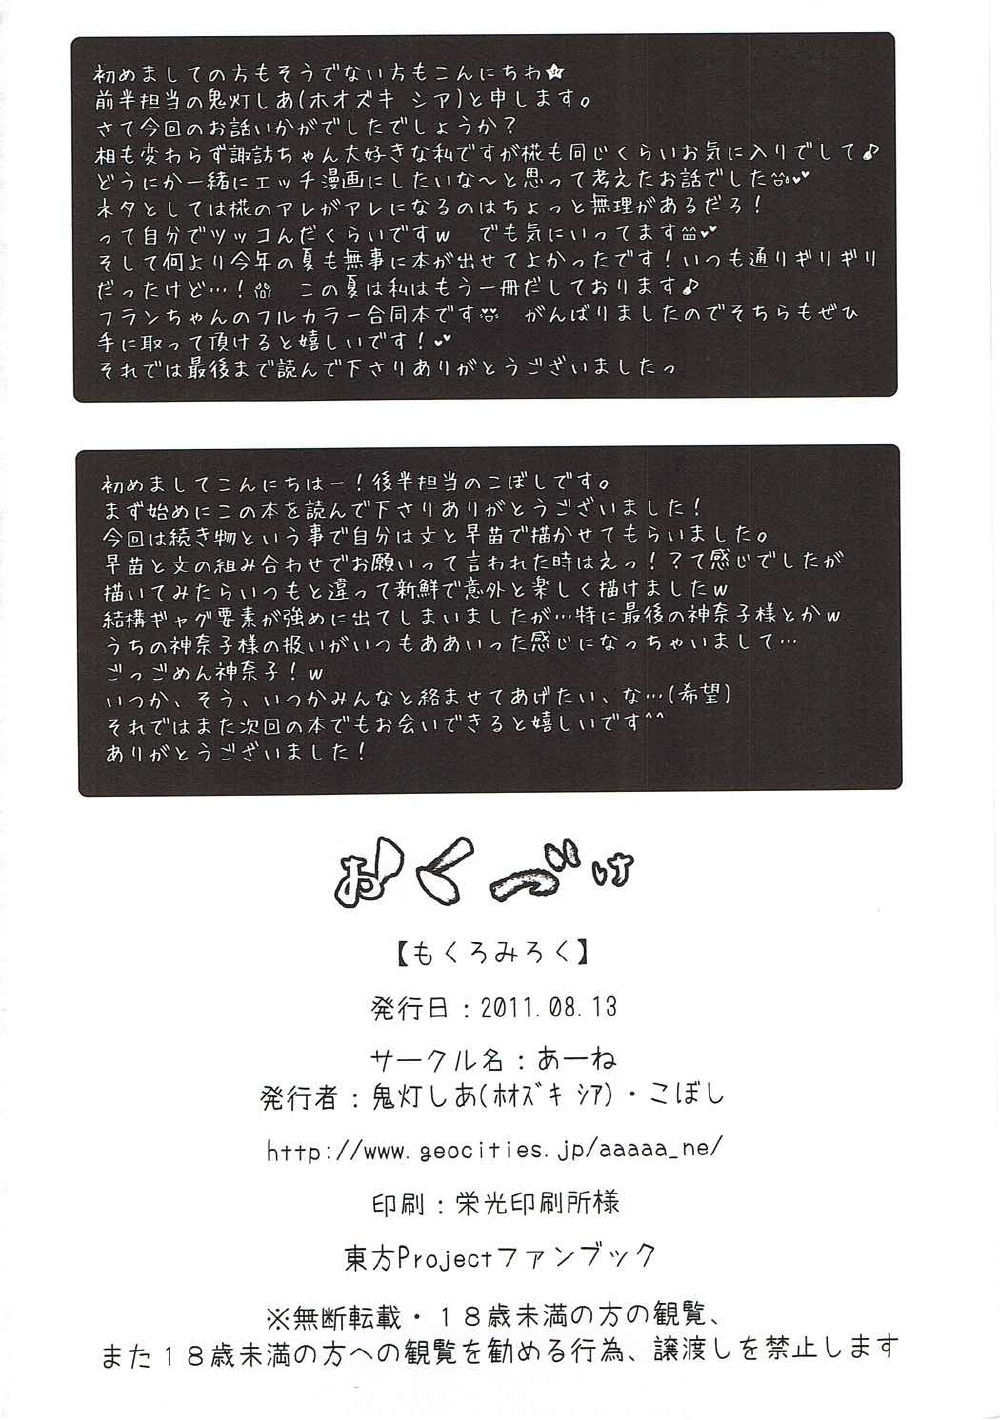 初めましての方もそうでない方もこんにちわ★
前半担当の鬼灯しあ(ホオズキ シア)と申します。
さて今回のお話いかがでしたでしょうか？
相も変わらず諏訪ちゃん大好きな私ですが椛も同じくらいお気に入りでして♪
どうにか一緒にエッチ漫画にしたいな～と思って考えたお話でした♥♥
ネタとしては椛のアレがアレになるのはちょっと無理があるだろ！
って自分でツッコんだくらいですｗ　でも気にいってます♥♥
そして何より今年の夏も無事に本が出せてよかったです！いつも通りギリギリ
だったけど…！　この夏は私はもう一冊だしております♪
フランちゃんのフルカラー合同本です　がんばりましたのでそちらもぜひ
手に取って頂けると嬉しいです！♥♥
それでは最後まで読んで下さりありがとうございましたっ
初めましてこんにちはー！後半担当のこぼしです。
まず始めにこの本を読んで下さりありがとうございました！
今回は続き物という事で自分は文と早苗で描かせてもらいました。
早苗と文の組み合わせでお願いって言われた時はえっ！？て感じでしたが
描いてみたらいつもと違って新鮮で意外と楽しく描けましたｗ
結構ギャグ要素が強めに出てしまいましたが…特に最後の神奈子様とかｗ
うちの神奈子様の扱いがいつもああいった感じになっちゃいまして…
ごっごめん神奈子！ｗ
いつか、そう、いつかみんなと絡ませてあげたい、な…(希望)
それではまた次回の本でもお会いできると嬉しいです^^
ありがとうございました！
おくづけ
【もくろみろく】
発行日：2011.08.13
サークル名：あーね
発行者：鬼灯しあ(ﾎｵｽﾞｷ ｼｱ)・こぼし
http://www.geocities.jp/aaaaa_ne/
印刷：栄光印刷所様
東方Projectファンブック
※無断転載・１８歳未満の方の観覧、
また１８歳未満の方への観覧を勧める行為、譲渡しを禁止します